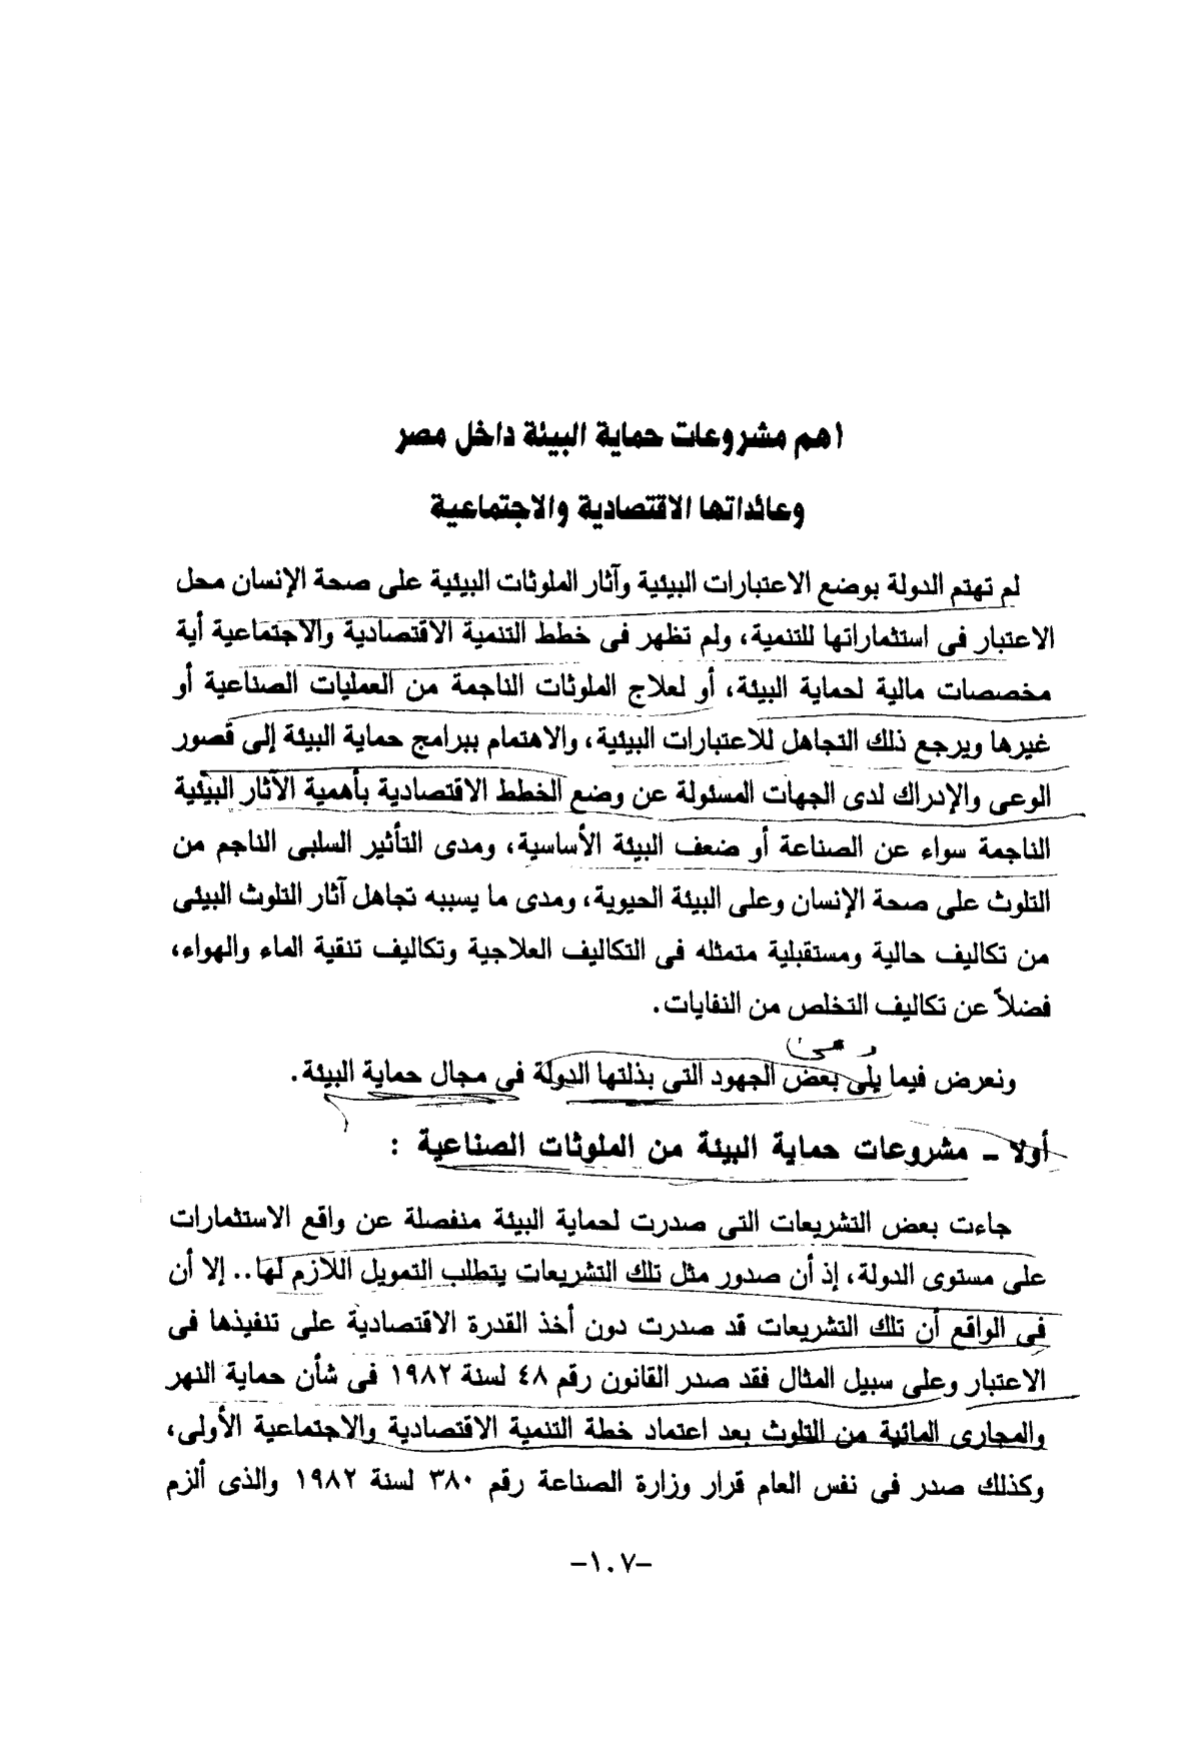 اهم مشروعات حماية البيئة داخل مصر
وعائداتها الاقتصادية والاجتماعية
لم تهتم الدولة بوضع الاعتبارات البيئية وآثار الملوثات البيئية على صحة الإنسان محل
الاعتبار فى استثماراتها للتنمية، ولم تظهر فى خطط التنمية الاقتصادية والاجتماعية أية
مخصصات مالية لحماية البيئة، أو لعلاج الملوثات الناجمة من العمليات الصناعية أو
غيرها ويرجع ذلك التجاهل للاعتبارات البيئية، والاهتمام ببرامج حماية البيئة إلى قصور
الوعى والإدراك لدى الجهات المسئولة عن وضع الخطط الاقتصادية بأهمية الآثار البيئية
الناجمة سواء عن الصناعة أو ضعف البيئة الأساسية، ومدى التأثير السلبى الناجم من
التلوث على صحة الإنسان وعلى البيئة الحيوية، ومدى ما يسببه تجاهل آثار التلوث البيئى
من تكاليف حالية ومستقبلية متمثله فى التكاليف العلاجية وتكاليف تنقية الماء والهواء،
فضلاً عن تكاليف التخلص من النفايات.
ونعرض فيما يلى بعض الجهود التى بذلتها الدولة فى مجال حماية البيئة.
أولا - مشروعات حماية البيئة من الملوثات الصناعية :
جاءت بعض التشريعات التى صدرت لحماية البيئة منفصلة عن واقع الاستثمارات
على مستوى الدولة، إذ أن صدور مثل تلك التشريعات يتطلب التمويل اللازم لها.. إلا أن
فى الواقع أن تلك التشريعات قد صدرت دون أخذ القدرة الاقتصادية على تنفيذها فى
الاعتبار وعلى سبيل المثال فقد صدر القانون رقم ٤٨ لسنة ١٩٨٢ فى شأن حماية النهر
والمجارى المائية من التلوث بعد اعتماد خطة التنمية الاقتصادية والاجتماعية الأولى،
وكذلك صدر فى نفس العام قرار وزارة الصناعة رقم ٣٨٠ لسنة ١٩٨٢ والذى ألزم
-١٠٧-